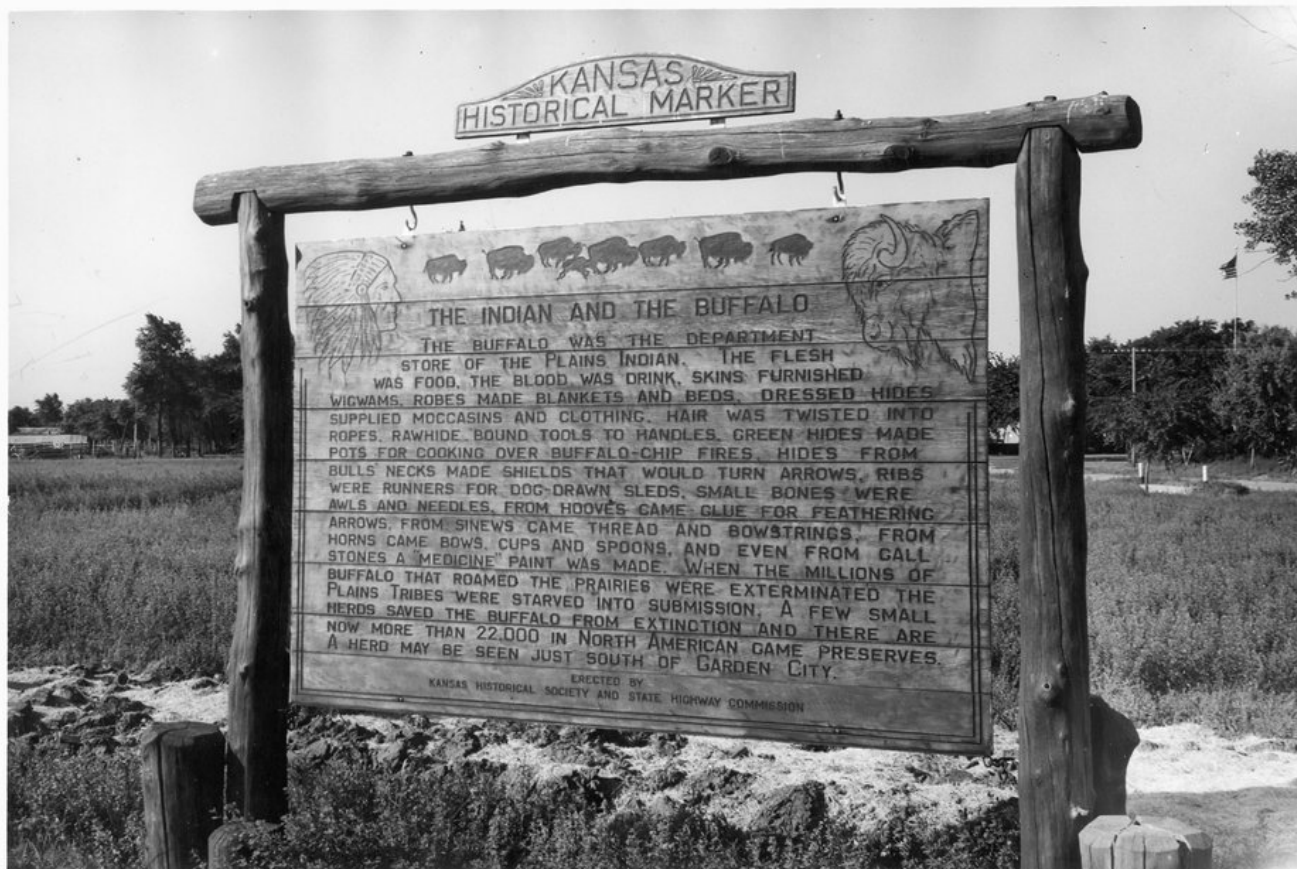 KANSAS
HISTORICAL MARKER
THE INDIAN AND THE BUFFALO
THE BUFFALO WAS THE DEPARTMENT
STORE OF THE PLAINS INDIAN. THE FLESH
WAS FOOD, THE BLOOD WAS DRINK, SKINS FURNISHED
WIGWAMS, ROBES MADE BLANKETS AND BEDS, DRESSED HIDES
SUPPLIED MOCCASINS AND CLOTHING, HAIR WAS TWISTED INTO
ROPES, RAWHIDE BOUND TOOLS TO HANDLES, GREEN HIDES MADE
POTS FOR COOKING OVER BUFFALO-CHIP FIRES, HIDES FROM
BULLS' NECKS MADE SHIELDS THAT WOULD TURN ARROWS, RIBS
WERE RUNNERS FOR DOG-DRAWN SLEDS, SMALL BONES WERE
AWLS AND NEEDLES, FROM HOOVES CAME GLUE FOR FEATHERING
ARROWS, FROM SINEWS CAME THREAD AND BOWSTRINGS, FROM
HORNS CAME BOWS, CUPS AND SPOONS, AND EVEN FROM GALL
STONES A "MEDICINE" PAINT WAS MADE. WHEN THE MILLIONS OF
BUFFALO THAT ROAMED THE PRAIRIES WERE EXTERMINATED THE
PLAINS TRIBES WERE STARVED INTO SUBMISSION. A FEW SMALL
HERDS SAVED THE BUFFALO FROM EXTINCTION AND THERE ARE
NOW MORE THAN 22,000 IN NORTH AMERICAN GAME PRESERVES.
A HERD MAY BE SEEN JUST SOUTH OF GARDEN CITY.
ERECTED BY
KANSAS HISTORICAL SOCIETY AND STATE HIGHWAY COMMISSION